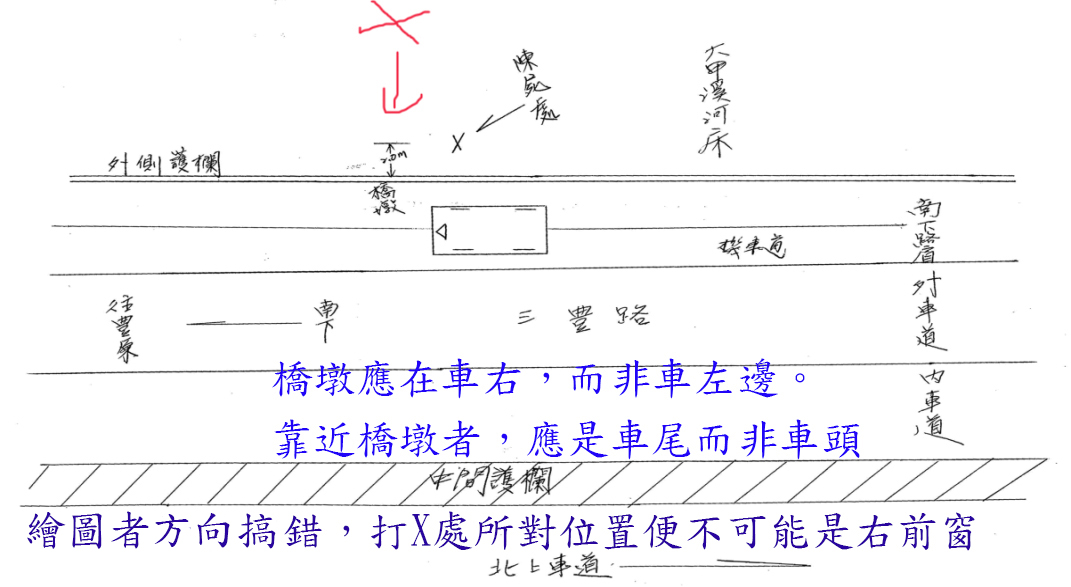 陳屍處
大甲溪河床
X
2.0m
外側護欄
橋墩
南下路肩
機車道
外車道
往豐原
南下
三豊路
橋墩應在車右，而非車左邊。
內車道
靠近橋墩者，應是車尾而非車頭
中間護欄
繪圖者方向搞錯，打X處所對位置便不可能是右前窗
北上車道